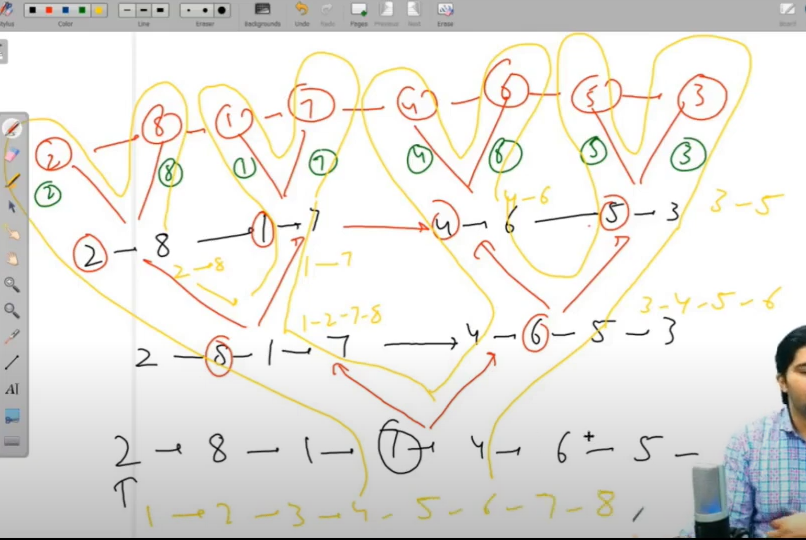 Stylus Color Line Eraser Backgrounds Undo Redo Pages Previous Next Erase Board
2 - 8 - 1 - 7 - 4 - 6 - 5 - 3
2 8 1 7 4 6 5 3
2 - 8 - 1 → 7 → 4 - 6 - 5 - 3
4-6 3-5
2→8 1-7
1-2-7-8 3-4-5-6
2 - 8 - 1 → 7 → 4 - 6 - 5 - 3
2 → 8 - 1 → 7 → 4 → 6 - 5 -
1 → 2 → 3 → 4 - 5 - 6 - 7 - 8
AI